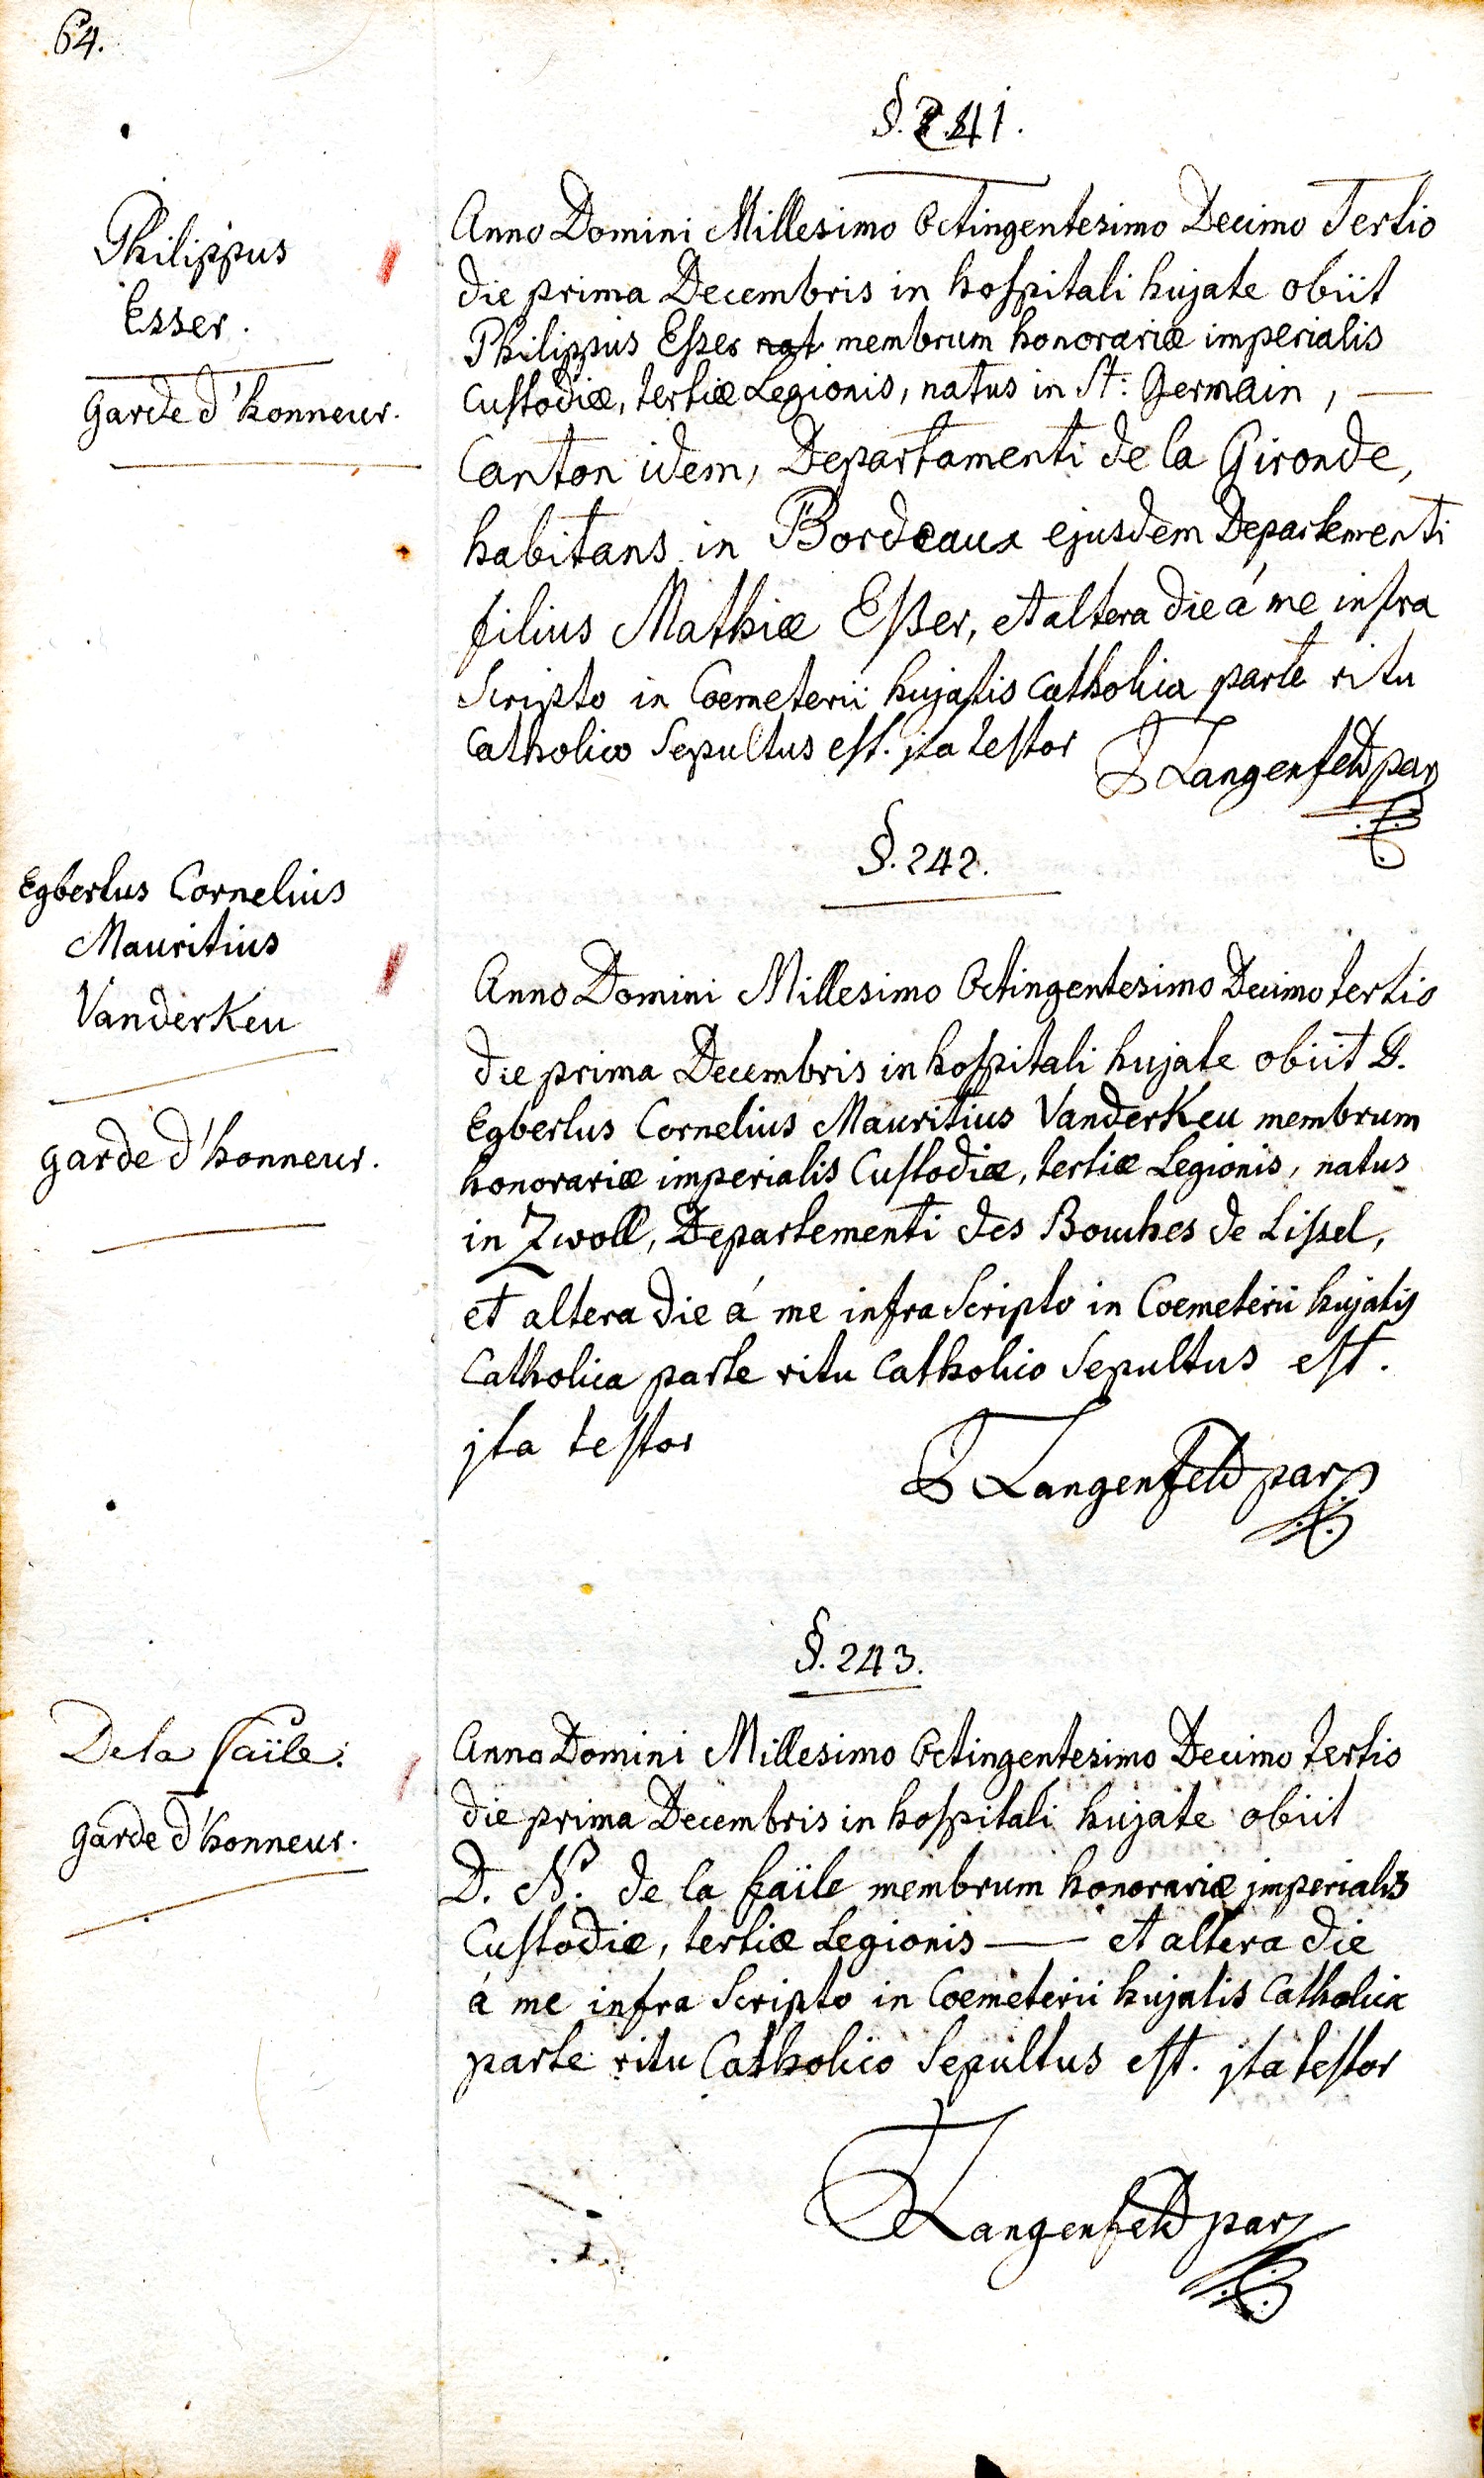 64.
§. 241.
Philippus
Esser.
garde d'honneur.
Anno Domini Millesimo Octingentesimo Decimo Tertio
die prima Decembris in hospitali hujate obiit
Philippus Esser nat membrum honorariæ imperialis
Custodiæ, tertiæ Legionis, natus in St: Germain, —
Canton idem, Departamenti de la Gironde,
habitans in Bordeaux ejusdem Departementi
filius Mathiæ Esser, et altera die á me infra
Scripto in Coemeterii hujatis Catholica parte ritu
Catholico Sepultus est. jta testor
Langenfeld par
§. 242.
Egbertus Cornelius
Mauritius
VanderKeu
garde d'honneur.
Anno Domini Millesimo Octingentesimo Decimo tertio
die prima Decembris in hospitali hujate obiit D.
Egbertus Cornelius Mauritius VanderKeu membrum
honorariæ imperialis Custodiæ, tertiæ Legionis, natus
in Zwoll, Departementi des Bouches de Lissel,
et altera die á me infra Scripto in Coemeterii hujatis
Catholica parte ritu Catholico Sepultus est.
jta testor
Langenfeld par
§. 243.
De la faïle:
garde d'honneur.
Anno Domini Millesimo Octingentesimo Decimo tertio
die prima Decembris in hospitali hujate obiit
D. N. de la faïle membrum honorariæ jmperialis
Custodiæ, tertiæ Legionis — et altera die
á me infra Scripto in Coemeterii hujatis Catholica
parte ritu Catholico Sepultus est. jta testor
Langenfeld par